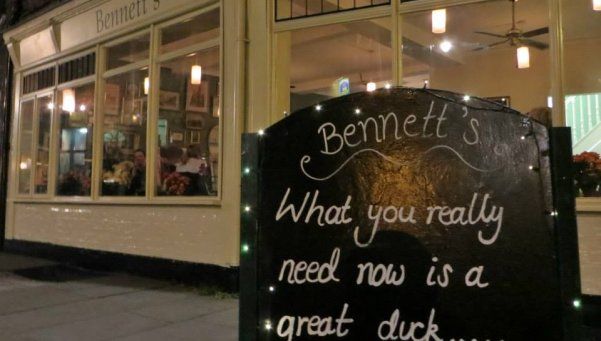 Bennett's
Bennett's
What you really
need now is a
great duck.....